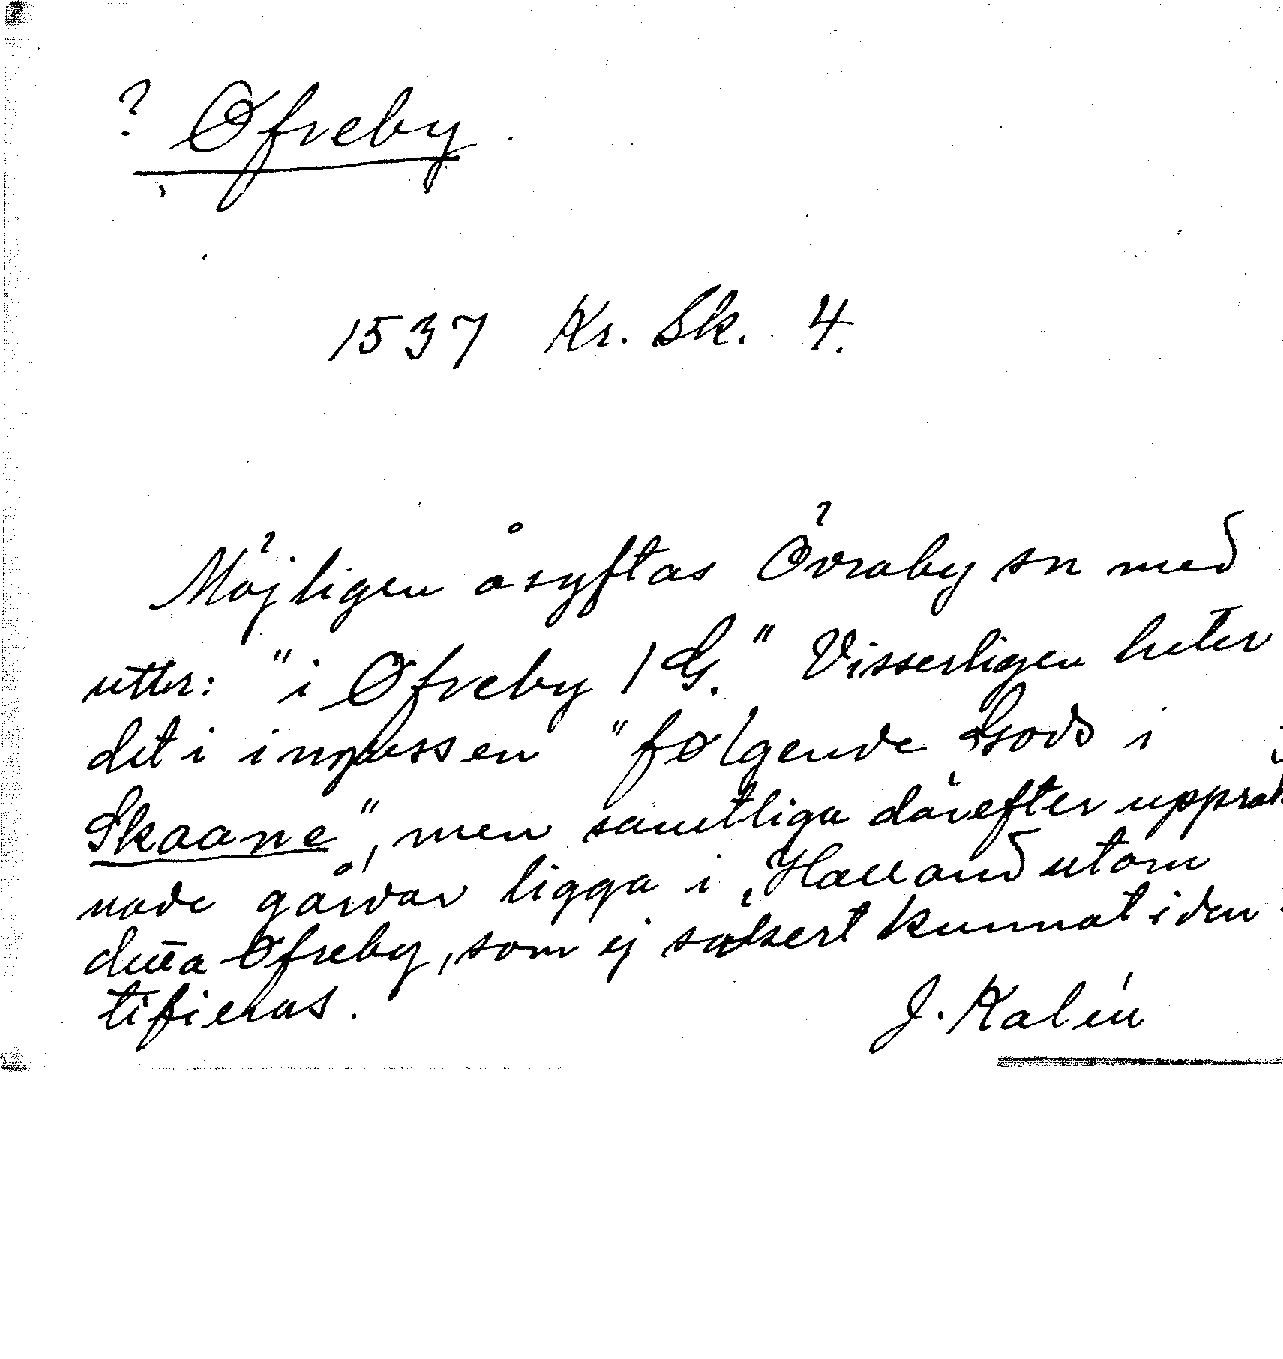 ? Øfreby
1537 Kr. Sk. 4.
Möjligen åsyftas Övraby sn med
uttr: "i Øfreby 1 G." Visserligen heter
det i ingressen "følgende Gods i
Skaane", men samtliga därefter uppräk
nade gårdar ligga i Halland utom
detta Øfreby, som ej säkert kunnat iden-
tifieras.
J. Kalén